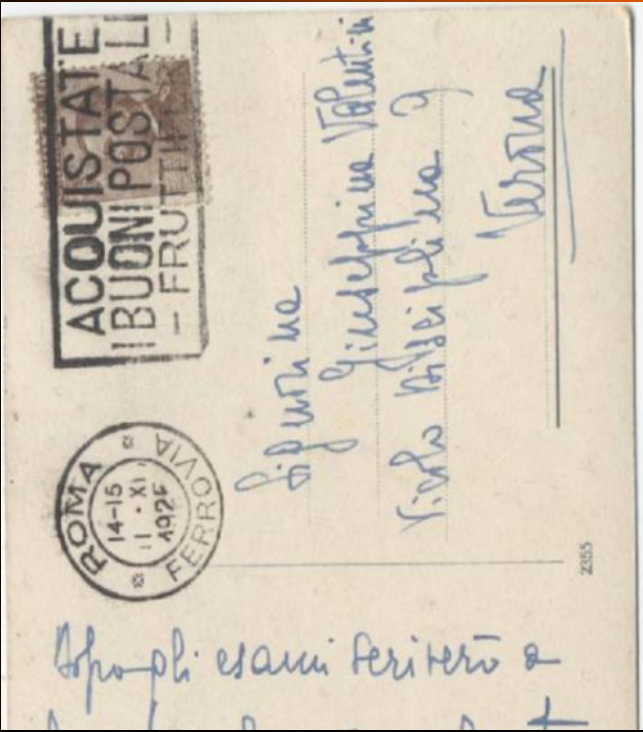 ACQUISTATE
I BUONI POSTALI
– FRUTTIF
ROMA
14-15
11 · XI
192
FERROVIA
Signorina
Giuseppina Valentini
Vicolo Disciplina 9
Verona
2355
Dopo gli esami scriverò a